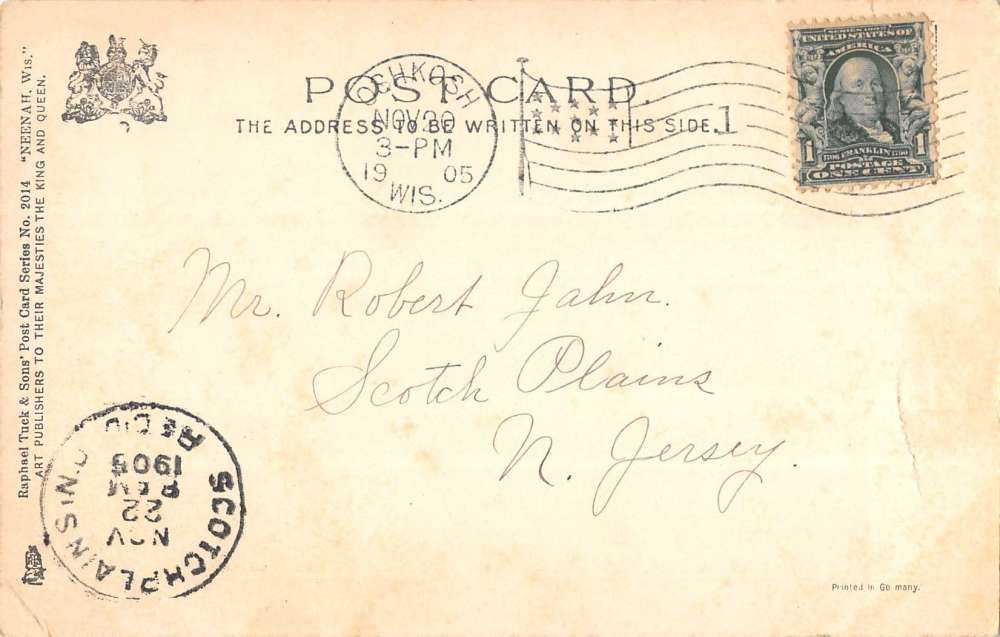 POST CARD.
THE ADDRESS TO BE WRITTEN ON THIS SIDE.
OSHKOSH
NOV 20
3-PM
1905
WIS.
1
SERIES 1902
UNITED STATES OF
AMERICA
1706 FRANKLIN 1790
POSTAGE
1 ONE CENT 1
Raphael Tuck & Sons' Post Card Series No. 2014 "NEENAH, Wis."
ART PUBLISHERS TO THEIR MAJESTIES THE KING AND QUEEN.
Mr. Robert Jahn.
Scotch Plains
N. Jersey.
SCOTCH PLAINS N.J.
NOV
22
1905
REC'D
Printed in Germany.